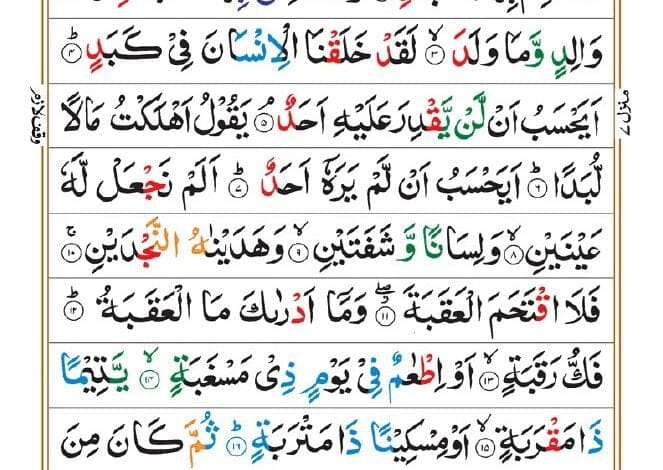 وَالِدٍ وَّمَا وَلَدَ ۙ۳ لَقَدْ خَلَقْنَا الْاِنْسَانَ فِیْ كَبَدٍ ؕ۴
اَیَحْسَبُ اَنْ لَّنْ یَّقْدِرَ عَلَیْهِ اَحَدٌ ۘ۵ یَقُوْلُ اَهْلَكْتُ مَالًا
لُّبَدًا ؕ۶ اَیَحْسَبُ اَنْ لَّمْ یَرَهٗۤ اَحَدٌ ؕ۷ اَلَمْ نَجْعَلْ لَّهٗ
عَیْنَیْنِ ۙ۸ وَلِسَانًا وَّ شَفَتَیْنِ ۙ۹ وَهَدَیْنٰهُ النَّجْدَیْنِ ۚ۱۰
فَلَا اقْتَحَمَ الْعَقَبَةَ ۖ۱۱ وَمَاۤ اَدْرٰىكَ مَا الْعَقَبَةُ ؕ۱۲
فَكُّ رَقَبَةٍ ۙ۱۳ اَوْ اِطْعٰمٌ فِیْ یَوْمٍ ذِیْ مَسْغَبَةٍ ۙ۱۴ یَّتِیْمًا
ذَا مَقْرَبَةٍ ۙ۱۵ اَوْ مِسْكِیْنًا ذَا مَتْرَبَةٍ ؕ۱۶ ثُمَّ كَانَ مِنَ
منزل ۷
وقف لازم